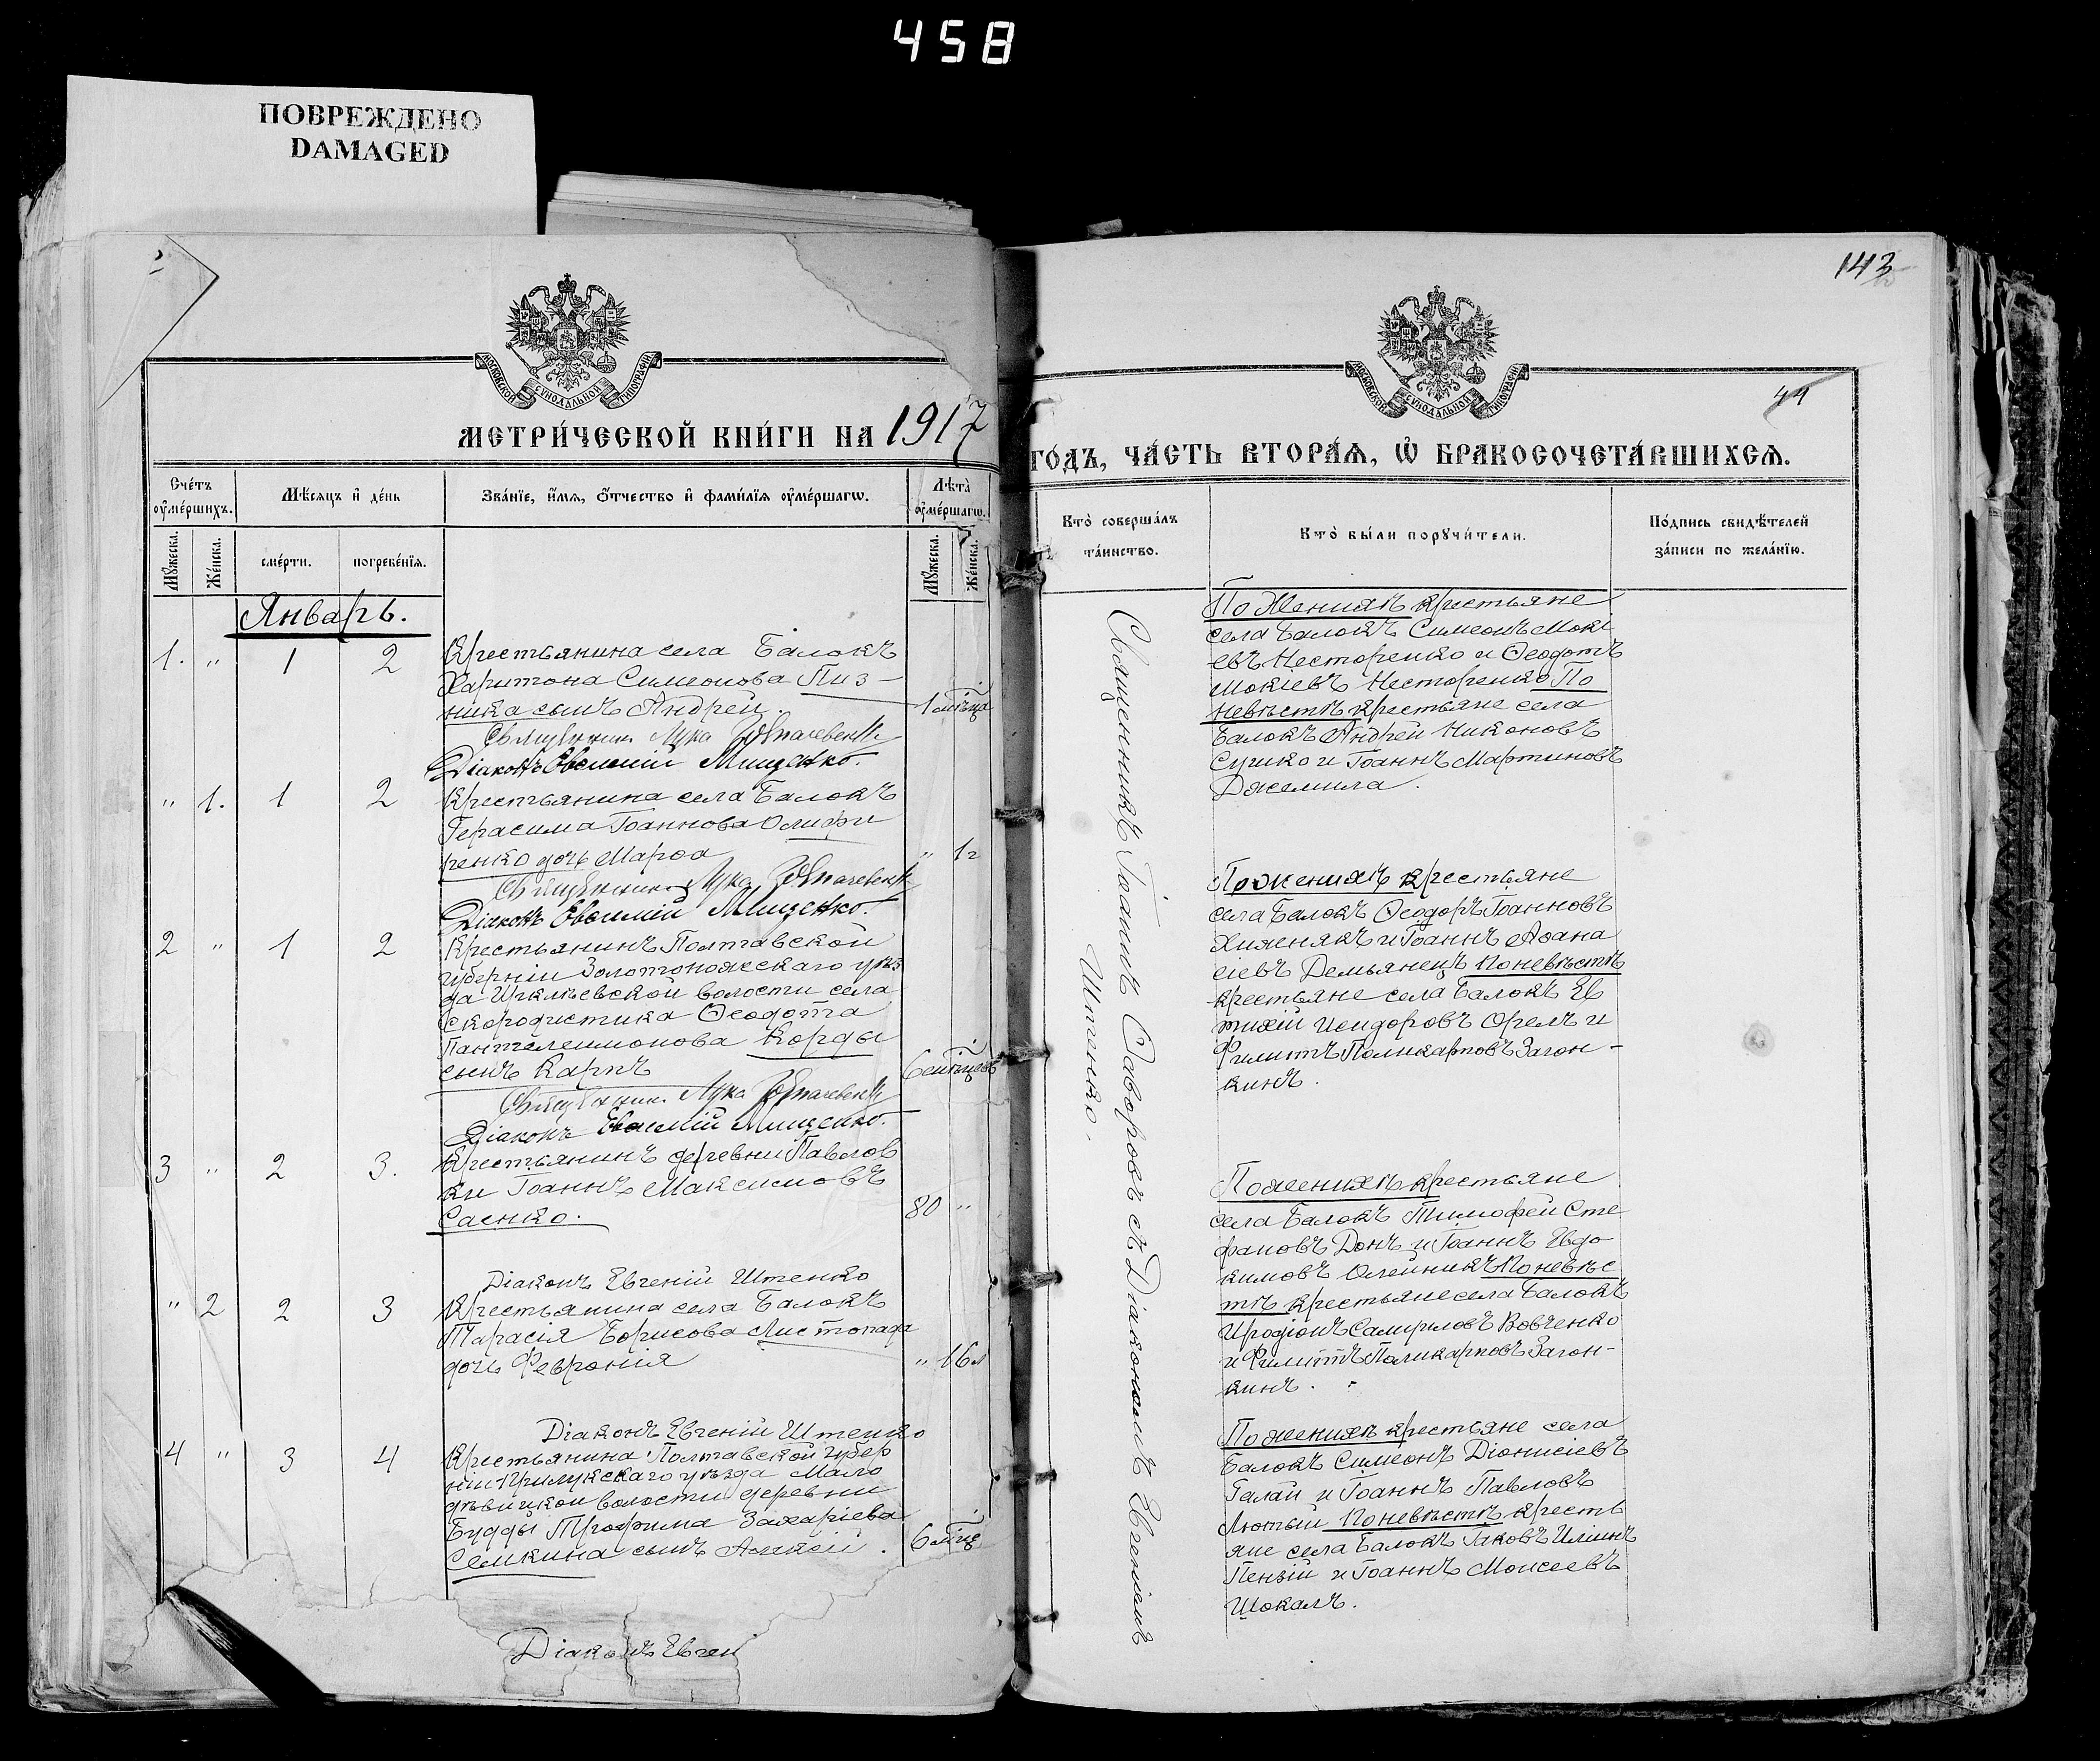 458
ПОВРЕЖДЕНО
DAMAGED
МОСКОВСКОЙ СѴНОДАЛЬНОЙ ТИПОГРАФІИ
МЕТРИ́ЧЕСКОЙ КНИ́ГИ НА 1917
Сче́тъ оу҆ме́ршихъ.
Мѣ́сяцъ и҆ де́нь
Зва́нїе, и҆́мѧ, ѻ҆́тчество и҆ фами́лїѧ оу҆ме́ршагѡ.
Лѣ́та оу҆ме́ршагѡ.
Мꙋ́жеска.
Же́нска.
сме́рти.
погребе́нїѧ.
Мꙋ́жеска.
Же́нска.
Январь.
1. " 1 2 Крестьянина села Балокъ
Харитона Симеонова Пиз-
ника сынъ Андрей. 1 мѣсца
Священник Лука
Діаконъ Евѳимій Мищенко.
" 1. 1 2 Крестьянина села Балокъ
Герасима Іоаннова Олифи
ренко дочь Марѳа " 1 г
Священник Лука
Діаконъ Евѳимій Мищенко.
2 " 1 2 Крестьянинъ Полтавской
губерніи Золотоношскаго уѣз
да Ирклѣевской волости села
Скородистика Ѳеодота
Пантелеимонова Корды
сынъ Карпъ 6 мѣсцевъ
Священник Лука
Діаконъ Евѳимій Мищенко.
3 " 2 3. Крестьянинъ деревни Павлов
ки Іоаннъ Максимовъ
Саенко. 80 "
Діаконъ Евгеній Штенко
" 2 2 3 Крестьянина села Балокъ
Тарасія Борисова Листопада
дочь Февронія " 16 л
Діаконъ Евгеній Штенко
4 " 3 4 Крестьянина Полтавской губер
ніи Прилукскаго уѣзда Мало
дѣвицкой волости деревни
Будды Трофима Захаріева
Семкина сынъ Алексій. 6 мѣсце
Діаконъ Евгені
143
МОСКОВСКОЙ СѴНОДАЛЬНОЙ ТИПОГРАФІИ
ГО́ДЪ, ЧА́СТЬ ВТОРА́Ѧ, Ѡ҆ БРАКОСОЧЕТА́ВШИХСѦ.
Кто̀ соверша́лъ та́инство.
Кто̀ бы́ли порꙋчи́тели.
По́дпись свидѣ́телей за́писи по жела́нїю.
Священникъ Іоаннъ Саворовъ съ Діакономъ Евгеніемъ
Штенко.
По Женихѣ крестьяне
села Балокъ Симеонъ Мокі
евъ Несторенко и Ѳеодотъ
Мокіевъ Несторенко По
невѣстѣ крестьяне села
Балокъ Андрей Никоновъ
Сушко и Іоаннъ Мартиновъ
Джемила.
По женихѣ крестьяне
села Балокъ Ѳеодоръ Іоанновъ
Хижнякъ и Іоаннъ Аѳана
сіевъ Демьянецъ По невѣстѣ
крестьяне села Балокъ Ев
тихій Исидоровъ Орелъ и
Филиппъ Поликарповъ Загон-
кинъ.
По женихѣ крестьяне
села Балокъ Тимофей Сте
фановъ Донъ и Іоаннъ Евдо
кимовъ Олейникъ По невѣс
тѣ крестьяне села Балокъ
Иродіонъ Самуиловъ Вовченко
и Филиппъ Поликарповъ Загон-
кинъ.
По женихѣ крестьяне села
Балокъ Симеонъ Діонисіевъ
Галай и Іоаннъ Павловъ
Лютый По невѣстѣ кресть
яне села Балокъ Іаковъ Илiинъ
Пензій и Іоаннъ Моисеевъ
Шокалъ.